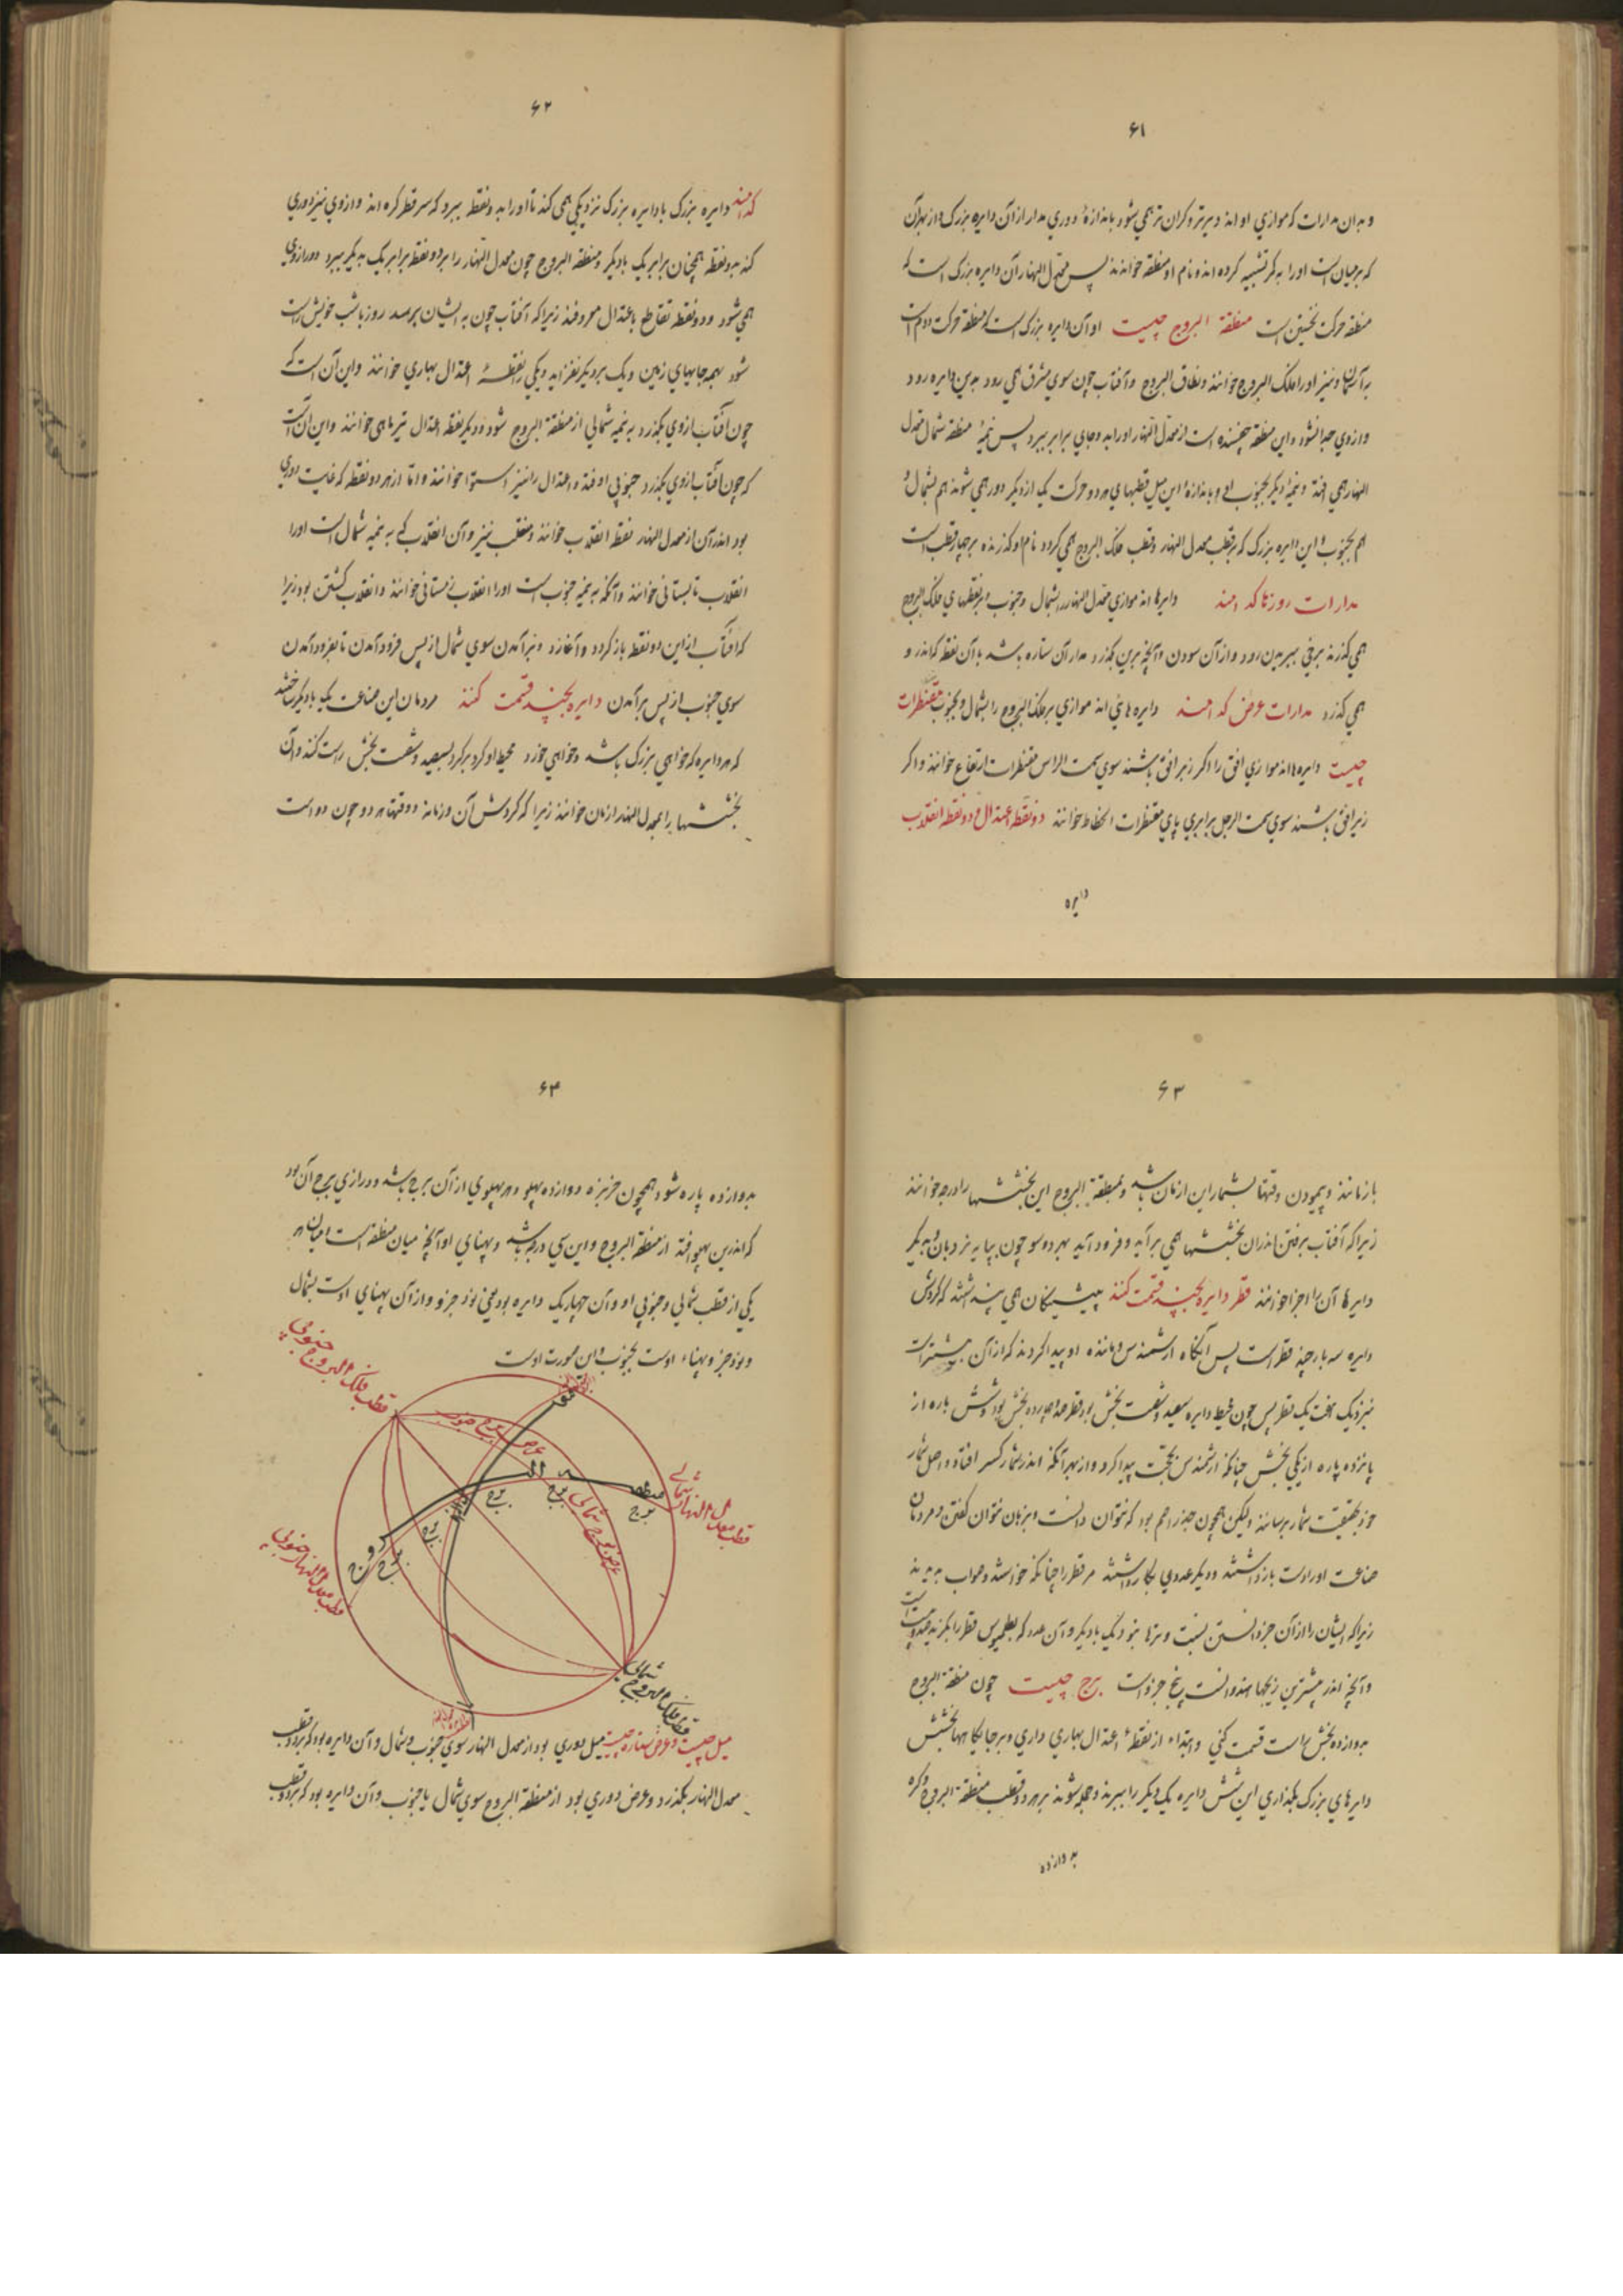 ۶۱
و بدان مدارات که موازی او اند دیرتر و گران تر همی شود باندازهٔ دوری مدار از آن دایره بزرگ و از بهر آن
که بر میان است او را به کمر تشبیه کرده اند و نام او منطقه خوانند پس معدل النهار آن دایره بزرگ است که
منطقه حرکت نخستین است منطقة البروج چیست او آن دایره بزرگ است که منطقه حرکت دوم است
به آسمان و نیز او را فلک البروج خوانند و نطاق البروج و آفتاب چون سوی مشرق همی رود بدین دایره رود
و از وی جدا نشود و این منطقه چسبنده است از معدل النهار او را به دو جای برابر ببرد پس نیمهٔ منطقه شمال معدل
النهار همی افتد و نیمهٔ دیگر بجنوب او و باندازهٔ این میل قطبهای هر دو حرکت یک از دیگر دور همی شوند هم بشمال و
هم بجنوب و این دایره بزرگ که بر قطب معدل النهار و قطب فلک البروج همی گردد نام او گذرنده بر چهار قطب است
مدارات روزها کدامند دایرها اند موازی معدل النهار بشمال و جنوب و بر نقطهای فلک البروج
همی گذرند برفتن ببریدن رود و از آن سودن و آنچه برین بگذرد مدار آن ستاره باشد یا آن نقطه که اندر و
همی گذرد مدارات عرض کدامند دایره های اند موازی بر فلک البروج را بشمال و بجنوب مقنطرات
چیست دایره ها اند موازی افق را اگر زبر افق باشند سوی سمت الراس مقنطرات ارتفاع خوانند و اگر
زیر افق باشند سوی سمت الرجل برابری پای مقنطرات انحطاط خوانند دو نقطه اعتدال و دو نقطه انقلاب
دایره
۶۲
کدامند دایره بزرگ با دایره بزرگ نزدیکی همی کند تا او را به دو نقطه ببرد که سر قطر کره اند و از وی نیز دوری
کند بدو نقطه همچنان برابر یک با دیگر و منطقه البروج چون معدل النهار را بر دو نقطه برابر یک بدیگر ببرد دور از وی
همی شود و دو نقطه تقاطع باعتدال معروفند زیرا که آفتاب چون به ایشان برسد روز با شب خویش راست
شود بهمه جایهای زمین و یک بر دیگر نفزاید و یکی را نقطهٔ اعتدال بهاری خوانند و این آن است که
چون آفتاب از وی بگذرد به نیمه شمالی از منطقة البروج شود و دیگر نقطه اعتدال تیر ماهی خوانند و این آن است
که چون آفتاب از وی بگذرد جنوبی اوفتد و اعتدال را نیز استوا خوانند و اما از هر دو نقطه که غایت دوری
بود اندر آن از معدل النهار نقطه انقلاب خوانند و منقلب نیز و آن انقلاب که به نیمه شمال است او را
انقلاب تابستانی خوانند و آنکه به نیمه جنوب است او را انقلاب زمستانی خوانند و انقلاب گشتن بود زیرا
که آفتاب از این دو نقطه باز گردد و آغازد و بر آمدن سوی شمال از پس فرود آمدن تا بفرود آمدن
سوی جنوب از پس بر آمدن دایره بچند قسمت کنند مردمان این صناعت یک با دیگر بساختند
که هر دایره که خواهی بزرگ باشد و خواهی خرد محیط او گرد بر گرد بسیصد و شصت بخش راست کنند و آن
بخششها را بمعدل النهار ازمان خوانند زیرا که گردش آن و زمانه و وقتها هر دو چون دو است
۶۳
بازمانند و پیمودن وقتها بشمار این ازمان باشد و بمنطقة البروج این بخششها را درجه خوانند
زیرا که آفتاب برفتن اندران بخششها همی بر آید و فرود آید بهر دو سو چون بپایه نردبان و بدیگر
دایرها آن را اجزا خوانند قطر دایره بچند قسمت کنند پیشینگان همی پنداشتند که گردش
دایره سه بار چند قطر است پس آنگاه ارشمیدس و مانند او پیدا کردند که از آن بیشتر است
نیزدیک هفت یک قطر پس چون محیط دایره سیصد و شصت بخش بود قطر صد و چهارده بخش بود و شش باره از
یازده پاره از یکی بخش چنانکه ارشمیدس بحجت پیدا کرد و از بهر آنکه اندر شمار کسر افتاد و اصل شمار
خود بحقیقت شمار برسانند ولیکن همچون جذر اصم بود که نتوان دانست و بزبان نتوان گفتن و مردمان
صناعت او را دست بازداشتند و دیگر عددی بکار داشتند مر قطر را چنانکه خواستند و صواب دیدند
زیرا که ایشان را از آن جز دانستن نسبت وترها نبود یک با دیگر و آن عدد که بطلمیوس قطر را بگزید صد و بیست است
و آنچه اندر بیشترین زیجها هندوانست پنج جزو است برج چیست چون منطقة البروج
بدوازده بخش راست قسمت کنی و ابتدا از نقطهٔ اعتدال بهاری داری و بر جایگاهها بخشش
دایرهای بزرگ بگذاری این شش دایره یک دیگر را ببرند و جمله شوند بر هر دو قطب منطقة البروج و کره
به دوازده
۶۴
بدوازده پاره شود همچون خربزه دوازده پهلو و هر پهلوی از آن برج باشد و درازی برج آن بود
که اندرین پهلو افتد از منطقة البروج و این سی درجه باشد و پهنای او آنچه میان منطقه است و میان هر
یکی از قطب شمالی و جنوبی او و آن چهار یک دایره بود یعنی نود جزو و از آن پهنای اوست بشمال
و نود جزو پهناء اوست بجنوب و این صورت اوست
قطب فلک البروج جنوبی
عرض برج جنوب
عرض برج شمالی
قطب معدل النهار شمالی
قطب معدل النهار جنوبی
منطقه
ال
بروج
برج
برج
برج
برج
برج
معدل
النهار
قطب فلک البروج شمالی
میل چیست و عرض ستاره چیست میل دوری بود از معدل النهار سوی جنوب و شمال و آن دایره بود که بر دو قطب
معدل النهار بگذرد و عرض دوری بود از منطقة البروج سوی شمال یا جنوب و آن دایره بود که بر دو قطب